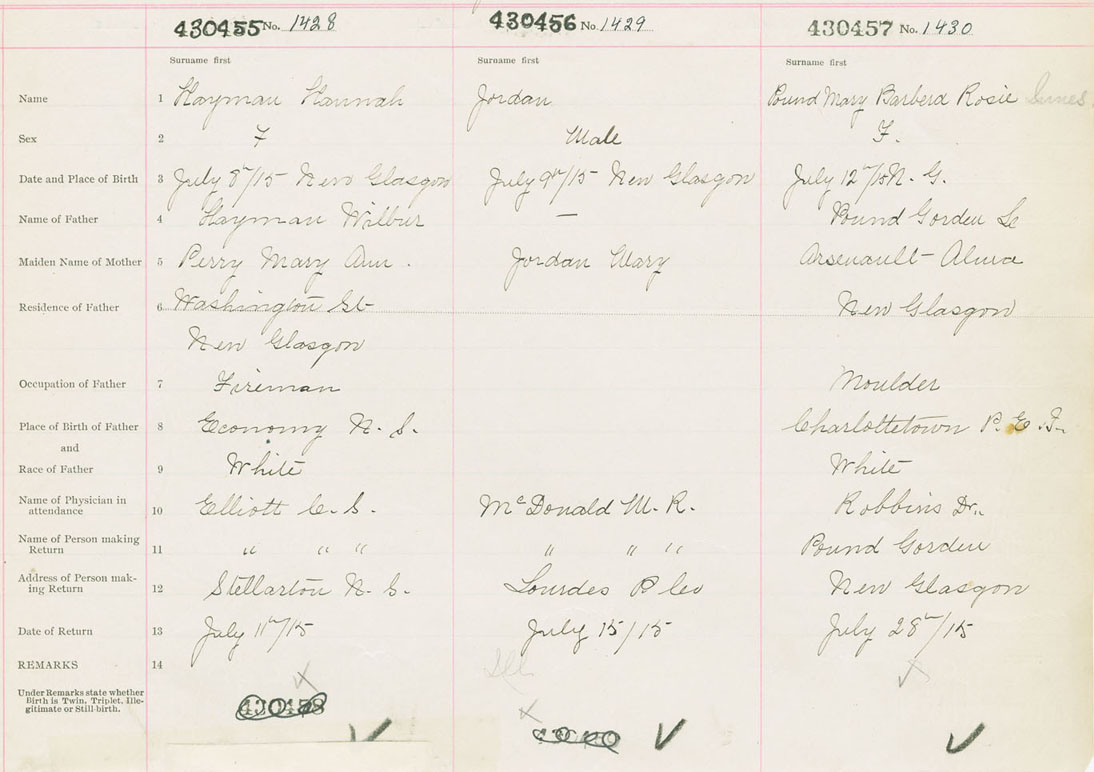 430455 No. 1428 430456 No 1429 430457 No. 1430
Surname first Surname first Surname first
Name 1 Hayman Hannah Jordan Pound Mary Barberd Rosie
Sex 2 F Male F.
Date and Place of Birth 3 July 8th/15 New Glasgow July 9th/15 New Glasgow July 12th/15 N. G.
Name of Father 4 Hayman Wilbur — Pound Gorden
Maiden Name of Mother 5 Perry Mary Ann. Jordan Mary Arsenault Alma
Residence of Father 6 Washington St New Glasgow
New Glasgow
Occupation of Father 7 Fireman Moulder
Place of Birth of Father 8 Economy N. S. Charlottetown P. E. I.
and
Race of Father 9 White White
Name of Physician in
attendance 10 Elliott C. S. McDonald M. R. Robbins Dr.
Name of Person making
Return 11 " " " " " " Pound Gorden
Address of Person mak-
ing Return 12 Stellarton N. S. Lourdes P Co New Glasgow
Date of Return 13 July 11th/15 July 15/15 July 28th/15
REMARKS 14
Ill
Under Remarks state whether
Birth is Twin, Triplet, Ille-
gitimate or Still-birth.